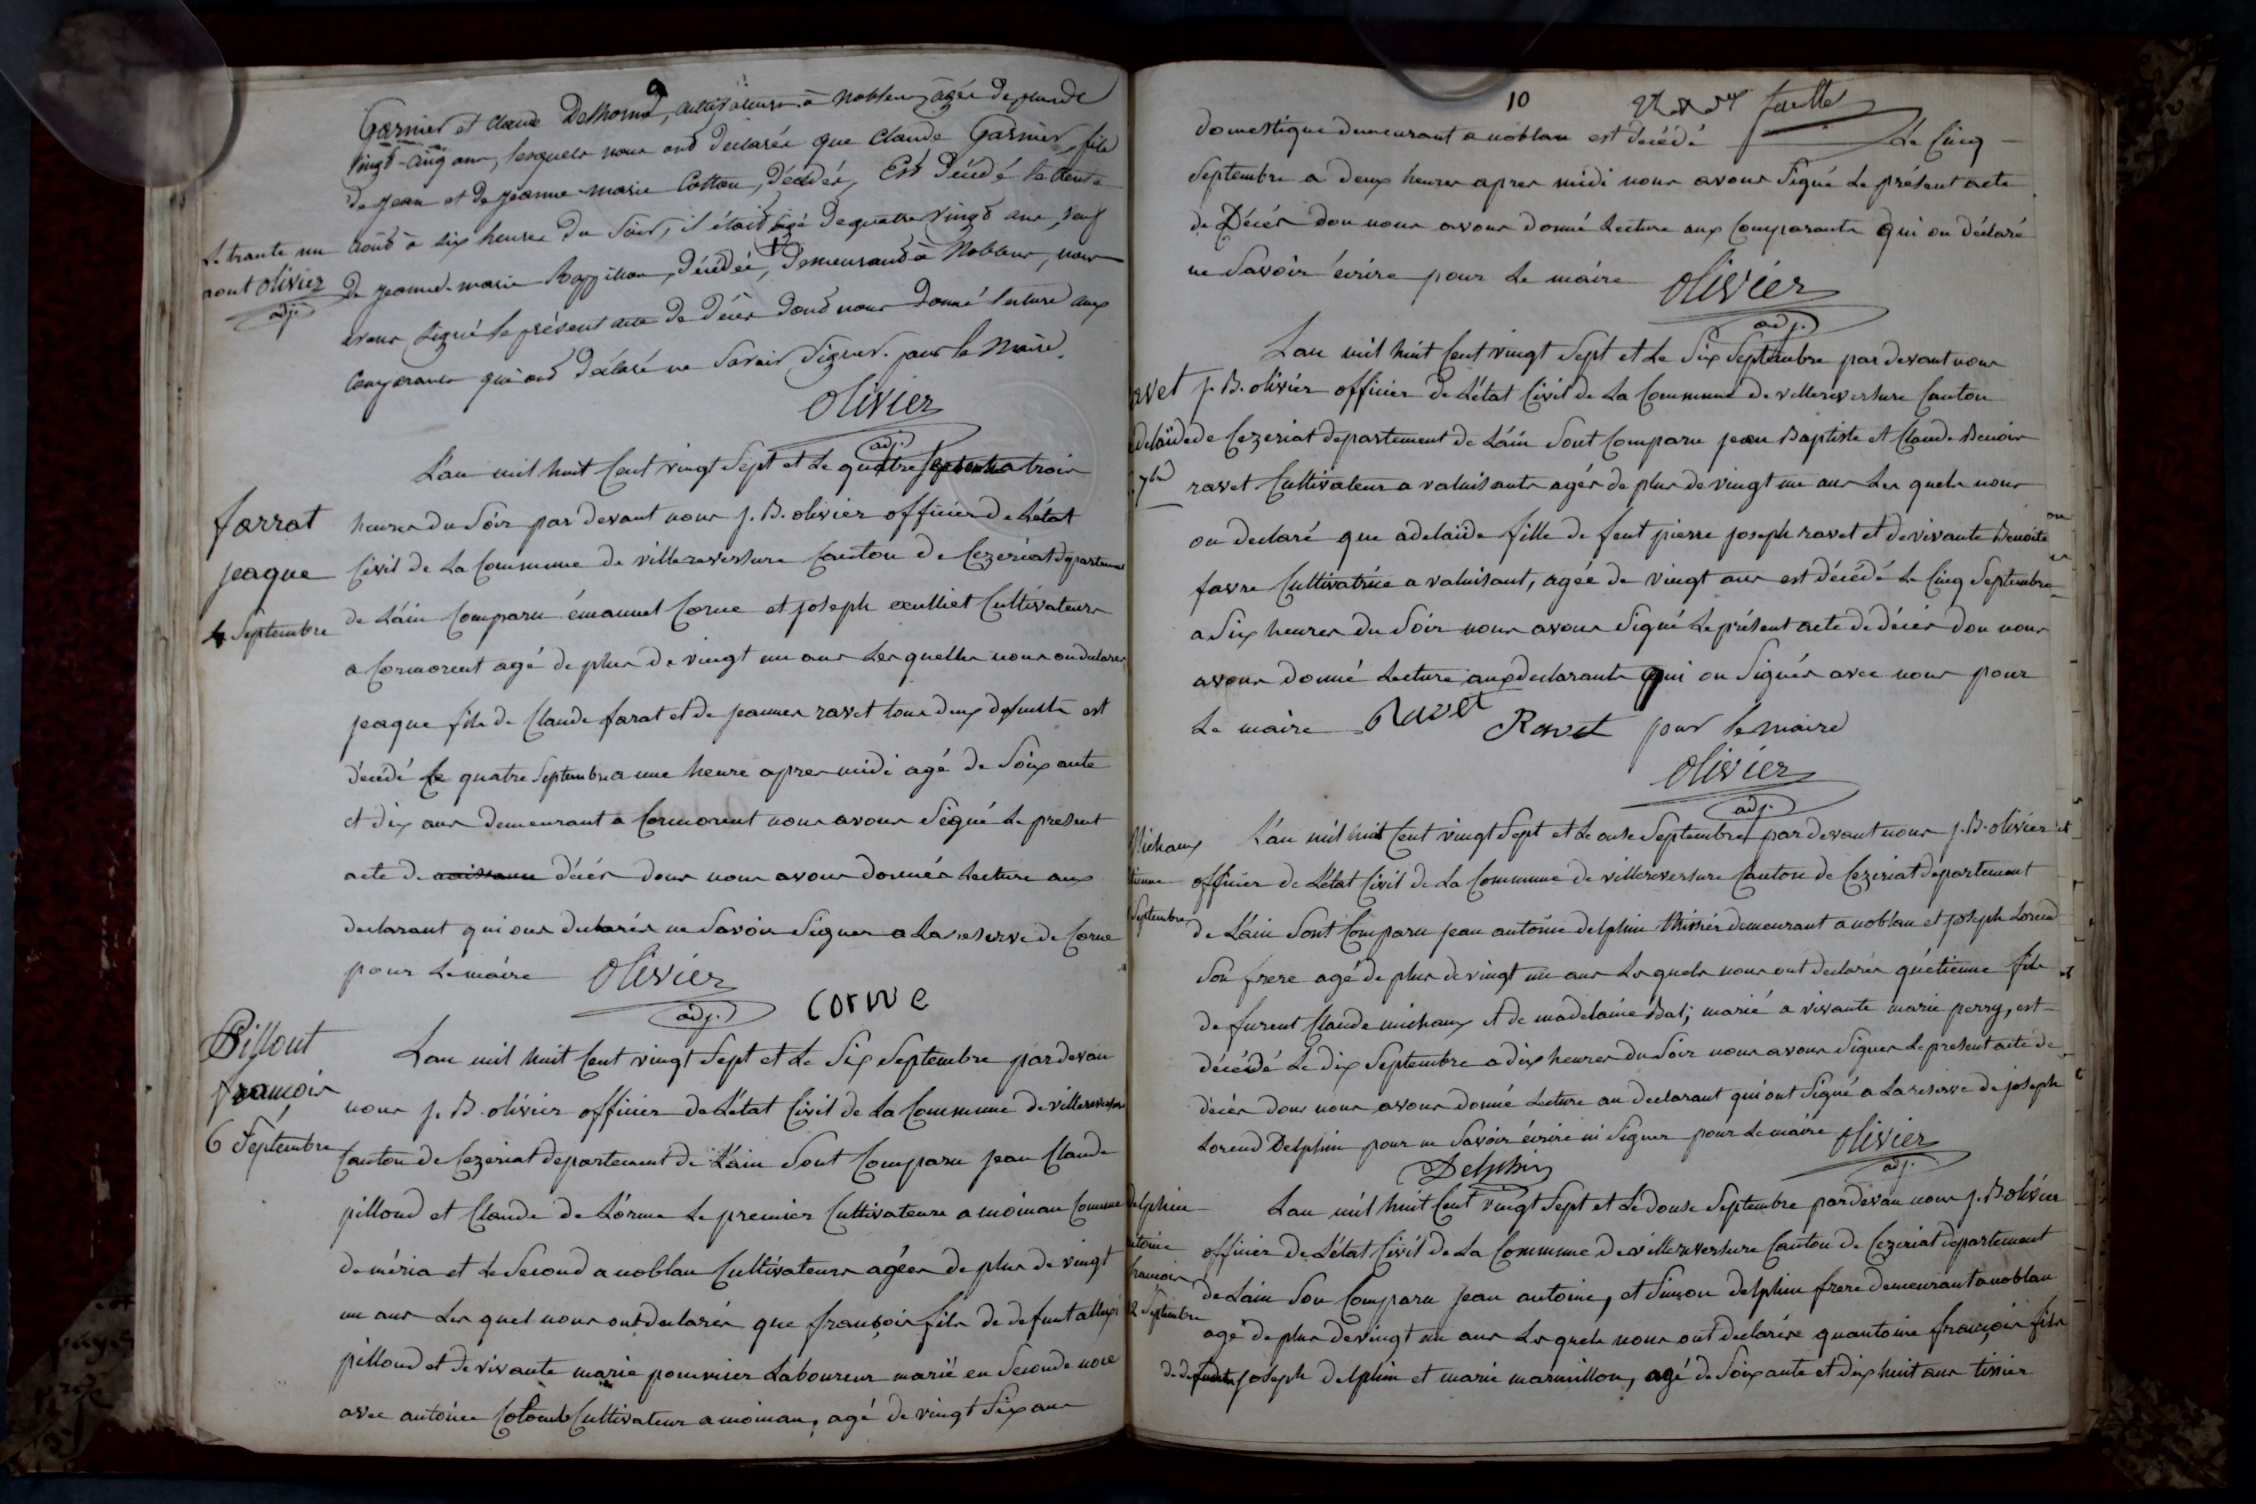 9
Garnier et claude Delhorme, cultivateurs à Noblens, agés de plus de
vingt-cinq ans, lesquels nous ont déclarés que claude Garnier, fils
de jean et de jeanne marie Cotton, décédés, Est décédé le trente
août à six heures du soir, il était agé de quatre vingt ans, veuf
Le trante un
aout olivier
adj.
de jeanne-marie décédée, demeurant à Noblens, nous
avons signé le présent acte de décès dont nous donné lecture aux
comparants qui ont déclaré ne savoir signer. pour le Maire.
Olivier
adj.
L'an mil huit Cent vingt Sept et Le quatre Septembre a trois
farrat
jeaque
4 Septembre
heures du Soir par devant nous j. B. olivier officier de L'état
Civil de La Commune de villereversure Canton de Cezeriat departement
de L'ain Comparu émanuel Corne et joseph Cultivateurs
a Cormorent agé de plus de vingt un ans Les quelles nous on declarer
jeaque fils de Claude farat et de jeanne ravet tous deux defunts est
décédé Le quatre Septembre a une heure apres midi agé de Soixante
et dix ans demeurant a Cormorent nous avons Signé Le present
acte de naissance décés dons nous avons donnés Lecture aux
declarant qui ons declarés ne Savoir Signer a La reserve de Corne
pour Le maire Olivier
adj.
corne
Pillout
francois
6 Septembre
L'an mil huit Cent vingt Sept et Le Six Septembre par devan
nous j. B. olivier officier de L'état Civil de La Commune de villereversure
Canton de Cezeriat departement de L'ain Sont Comparu jean Claude
pilloud et Claude de Lorme Le premier Cultivateurs a moinan Commune
de méria et Le Second a noblan Cultivateurs agées de plus de vingt
un ans Les quel nous ont declarés que françois fils de defunt
pilloud et de vivante marie pommier Laboureur marié en Seconde noce
avec antoinee Colomb Cultivateur a moinan, agé de vingt Six ans
10
domestique demeurant a noblan est décédé Le Cinq
Septembre a deux heures apres midi nous avons Signé Le présent acte
de Décés don nous avons donné Lecture aux Comparants qui on déclaré
ne Savoir écrire pour Le maire Olivier
adj.
L'an mil huit Cent vingt Sept et Le Six Septembre par devant nous
avet
delaïde
7bre
j. B. olivier officier de L'état Civil de La Commune de villereversure Canton
de Cezeriat departement de L'ain Sont Comparu jean Baptiste et Claude Benoir
ravet Cultivateurs a valuisants agés de plus de vingt un ans Les quels nous
on declaré que adelaide fille de feut pierre joseph ravet et de vivante Benoite
favre Cultivatrice a valuisant, agée de vingt ans est décédé Le Cinq Septembre
a Six heures du Soir nous avons Signé Le présent acte de décés don nous
avons donné Lecture aux declarants qui on Signés avec nous pour
Le maire Ravet Ravet pour le maire
Olivier
adj.
Michaux
tienne
Septembre
L'an mil huit Cent vingt Sept et Le onse Septembre par devant nous j. B. olivier
officier de L'état Civil de La Commune de villereversure Canton de Cezeriat departement
de L'ain Sont Comparu jean antoine delphin thissier demeurant a noblan et joseph Lorend
Son frere agé de plus de vingt un ans Les quels nous ont declarés qu'étienne fils
de furent Claude michaux et de madelaine Bal; marié a vivante marie perry, est
décédé Le dix Septembre a dix heures du Soir nous avons Signer Le present acte de
décés dons nous avons donné Lecture au declarant qui ont Signé a La reserve de joseph
Lorend Delphin pour ne Savoir écrire ni Signer pour Le maire Olivier
adj.
Delphin
delphin
ntoine
francois
12 Septembre
L'an mil huit Cent vingt Sept et Le douse Septembre par devan nous j. B olivier
officier de L'état Civil de La Commune de villereversure Canton de Cezeriat departement
de Lain Son Comparu jean antoine, et Simon delphin frere demeurant a noblan
agé de plus de vingt un ans Les quels nous ont declarése quantoine françois fils
de defunt joseph delphin et marie marmillon, agé de Soixante et dix huit ans tissier